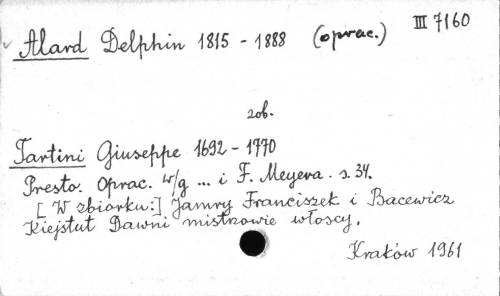 Alard Delphin 1815 - 1888 (oprac.) III 7160
zob.
Tartini Giuseppe 1692 - 1770
Presto. Oprac. w/g ... i F. Meyera. s. 34.
[W zbiorku:] Jamry Franciszek i Bacewicz
Kiejstut Dawni mistrzowie włoscy.
Kraków 1961